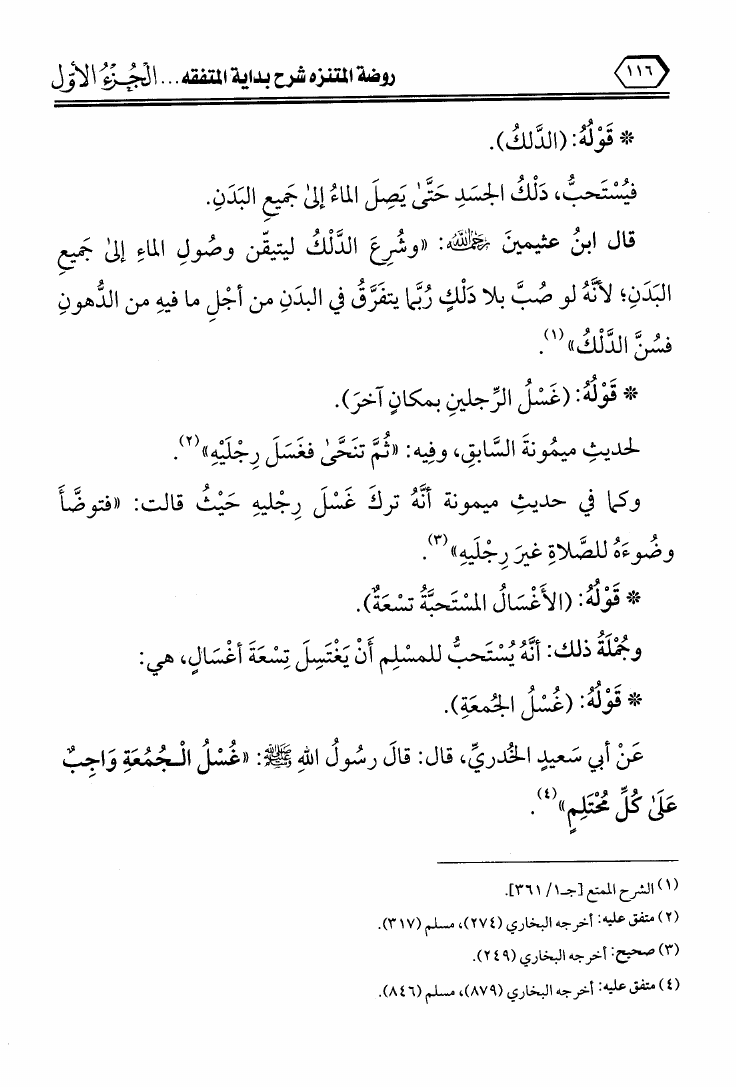 ١١٦ روضة المتنزه شرح بداية المتفقه... الْجُزْءُ الأَوَّل
* قَوْلُهُ: (الدَّلكُ).
فيُسْتَحبُّ، دَلْكُ الجَسَدِ حَتَّىٰ يَصِلَ الماءُ إلىٰ جَميعِ البَدَنِ.
قال ابنُ عثيمينَ رَحِمَهُ اللَّهُ: «وشُرِعَ الدَّلْكُ ليتيقّن وصُولِ الماءِ إلىٰ جَميعِ
البَدَنِ؛ لأنَّهُ لو صُبَّ بلا دَلْكٍ رُبَّما يتفَرَّقُ في البدَنِ من أجْلِ ما فيهِ من الدُّهونِ
فسُنَّ الدَّلْكُ»(١).
* قَوْلُهُ: (غَسْلُ الرِّجلينِ بمكانٍ آخرَ).
لحديثِ ميمُونةَ السَّابقِ، وفِيه: «ثُمَّ تنَحَّىٰ فغَسَلَ رِجْلَيْهِ»(٢).
وكما في حديثِ ميمونة أنَّهُ تركَ غَسْلَ رِجْليهِ حَيْثُ قالت: «فتوضَّأَ
وضُوءَهُ للصَّلاةِ غيرَ رِجْلَيهِ»(٣).
* قَوْلُهُ: (الأَغْسَالُ المُسْتَحبَّةُ تسْعَةٌ).
وجُمْلَةُ ذلك: أنَّهُ يُسْتَحبُّ للمسْلِم أَنْ يَغْتَسِلَ تِسْعَةَ أغْسَالٍ، هي:
* قَوْلُهُ: (غُسْلُ الجُمعَةِ).
عَنْ أبي سَعيدٍ الخُدريِّ، قال: قالَ رسُولُ اللهِ ﷺ: «غُسْلُ الْجُمُعَةِ وَاجِبٌ
عَلَىٰ كُلِّ مُحْتَلِمٍ»(٤).
(١) الشرح الممتع [جـ١/ ٣٦١].
(٢) متفق عليه: أخرجه البخاري (٢٧٤)، مسلم (٣١٧).
(٣) صحيح: أخرجه البخاري (٢٤٩).
(٤) متفق عليه: أخرجه البخاري (٨٧٩)، مسلم (٨٤٦).